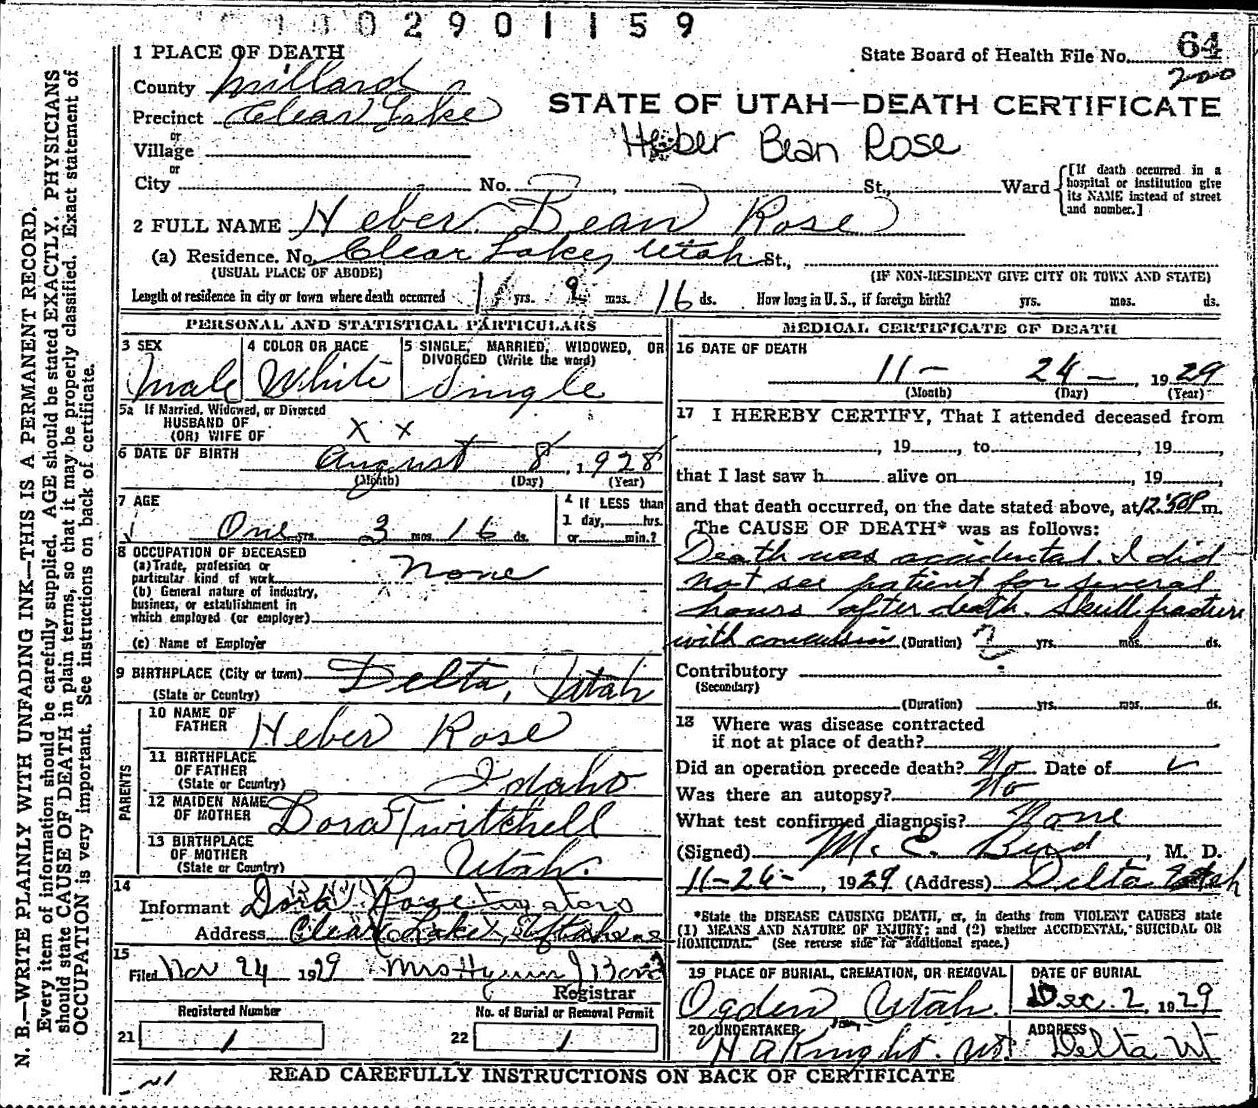 0 0 2 9 0 1 1 5 9
1 PLACE OF DEATH
State Board of Health File No. 64
200
County Millard
Precinct Clear Lake
or
Village
or
City No. St., Ward
STATE OF UTAH—DEATH CERTIFICATE
Heber Bean Rose
[If death occurred in a hospital or institution give its NAME instead of street and number.]
2 FULL NAME Heber Bean Rose
(a) Residence. No. Clear Lake, Utah St.,
(USUAL PLACE OF ABODE) (IF NON-RESIDENT GIVE CITY OR TOWN AND STATE)
Length of residence in city or town where death occurred 1 yrs. 9 mos. 16 ds. How long in U. S., if foreign birth? yrs. mos. ds.
PERSONAL AND STATISTICAL PARTICULARS
3 SEX Male
4 COLOR OR RACE White
5 SINGLE, MARRIED, WIDOWED, OR DIVORCED (Write the word) Single
5a If Married, Widowed, or Divorced
HUSBAND OF
(OR) WIFE OF X X
6 DATE OF BIRTH August 8, 1928
(Month) (Day) (Year)
7 AGE
One yrs. 3 mos. 16 ds.
If LESS than
1 day, hrs.
or min.?
8 OCCUPATION OF DECEASED
(a) Trade, profession or
particular kind of work none
(b) General nature of industry,
business, or establishment in
which employed (or employer)
(c) Name of Employer
9 BIRTHPLACE (City or town) Delta, Utah
(State or Country)
PARENTS
10 NAME OF FATHER Heber Rose
11 BIRTHPLACE OF FATHER
(State or Country) Idaho
12 MAIDEN NAME OF MOTHER Dora Twitchell
13 BIRTHPLACE OF MOTHER
(State or Country) Utah.
14
Informant Dora Rose
Address Clear Lake, Utah
15
Filed Nov 24 1929 Mrs Hymn J
Registrar
Registered Number
21 1
No. of Burial or Removal Permit
22 1
MEDICAL CERTIFICATE OF DEATH
16 DATE OF DEATH
11 - 24 -, 1929
(Month) (Day) (Year)
17 I HEREBY CERTIFY, That I attended deceased from
, 19 , to , 19 ,
that I last saw h alive on , 19 ,
and that death occurred, on the date stated above, at 12:50P m.
The CAUSE OF DEATH* was as follows:
Death was accidental. I did
not see patient for several
hours after death. Skull fracture
with concussion (Duration) ? yrs. mos. ds.
Contributory
(Secondary)
(Duration) yrs. mos. ds.
18 Where was disease contracted
if not at place of death?
Did an operation precede death? No Date of
Was there an autopsy? No
What test confirmed diagnosis? None
(Signed) M. E. Bird, M. D.
11-26-, 1929 (Address) Delta Utah
*State the DISEASE CAUSING DEATH, or, in deaths from VIOLENT CAUSES state
(1) MEANS AND NATURE OF INJURY; and (2) whether ACCIDENTAL, SUICIDAL OR
HOMICIDAL. (See reverse side for additional space.)
19 PLACE OF BURIAL, CREMATION, OR REMOVAL
Ogden, Utah.
DATE OF BURIAL
Dec. 2, 1929
20 UNDERTAKER
H A Knight.
ADDRESS
Delta Ut
READ CAREFULLY INSTRUCTIONS ON BACK OF CERTIFICATE
N. B.—WRITE PLAINLY WITH UNFADING INK—THIS IS A PERMANENT RECORD.
Every item of information should be carefully supplied. AGE should be stated EXACTLY. PHYSICIANS
should state CAUSE OF DEATH in plain terms, so that it may be properly classified. Exact statement of
OCCUPATION is very important. See instructions on back of certificate.